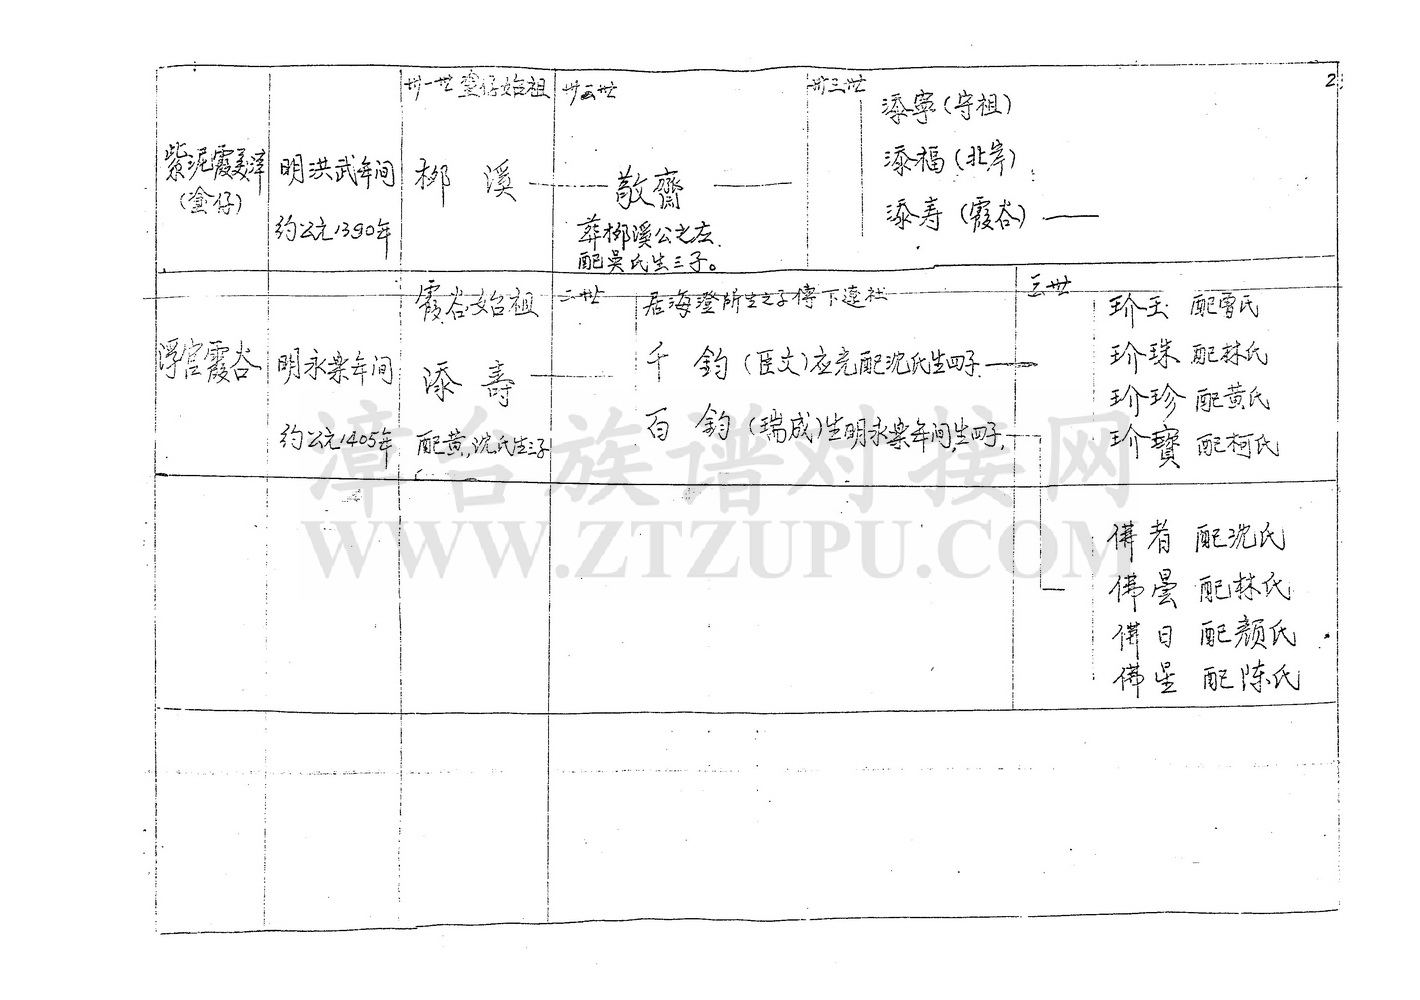 2
紫泥霞美洋
(壶仔)
明洪武年间
约公元1390年
卅一世 壶仔始祖
柳溪
卅二世
敬齋
葬柳溪公之左
配吴氏生三子。
卅三世
添寧(守祖)
添福(北岸)
添寿(霞谷)
浮宫霞谷
明永乐年间
约公元1405年
霞谷始祖
添寿
配黄,沈氏生三子
二世
居海澄所生之子傳下遠社
千鈞(匡文)应完配沈氏生四子
百鈞(瑞成)生明永楽年间,生四子,
三世
珍玉 配曾氏
珍珠 配林氏
珍珍 配黄氏
珍寶 配柯氏
佛者 配沈氏
佛曇 配林氏
佛日 配颜氏
佛星 配陈氏
漳台族谱对接网
WWW.ZTZUPU.COM